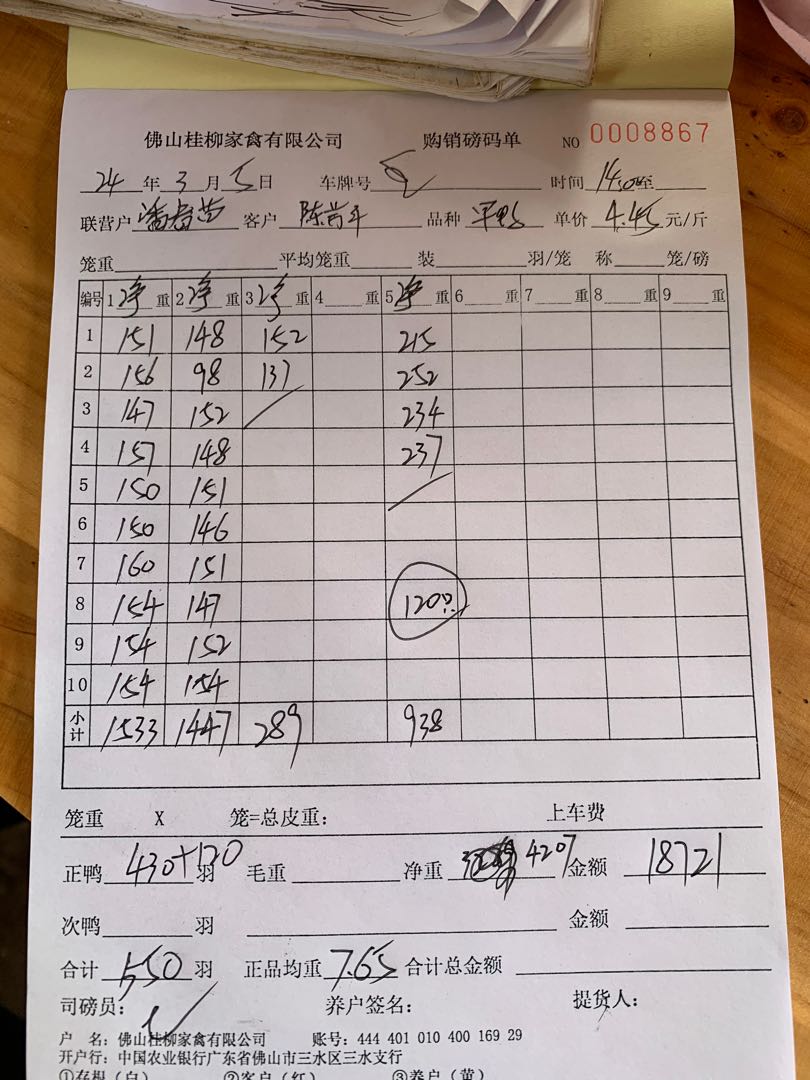 佛山桂柳家禽有限公司 购销磅码单 NO 0008867
24 年 3 月 5 日 车牌号 时间 至
联营户 客户 品种 单价 4.45 元/斤
笼重 平均笼重 装 羽/笼 称 笼/磅
编号 1 净 重 2 净 重 3 净 重 4 重 5 净 重 6 重 7 重 8 重 9 重
1 151 148 152 215
2 156 98 137 252
3 147 152 234
4 157 148 237
5 150 151
6 150 146
7 160 151
8 154 147 120
9 154 152
10 154 154
小计 1533 1447 289 938
笼重 X 笼=总皮重: 上车费
正鸭 430+120 羽 毛重 净重 4207 金额 18721
次鸭 羽 金额
合计 550 羽 正品均重 7.65 合计总金额
司磅员: 养户签名: 提货人:
户 名: 佛山桂柳家禽有限公司 账号: 444 401 010 400 169 29
开户行: 中国农业银行广东省佛山市三水区三水支行
①存根(白) ②客户(红) ③养户(黄)